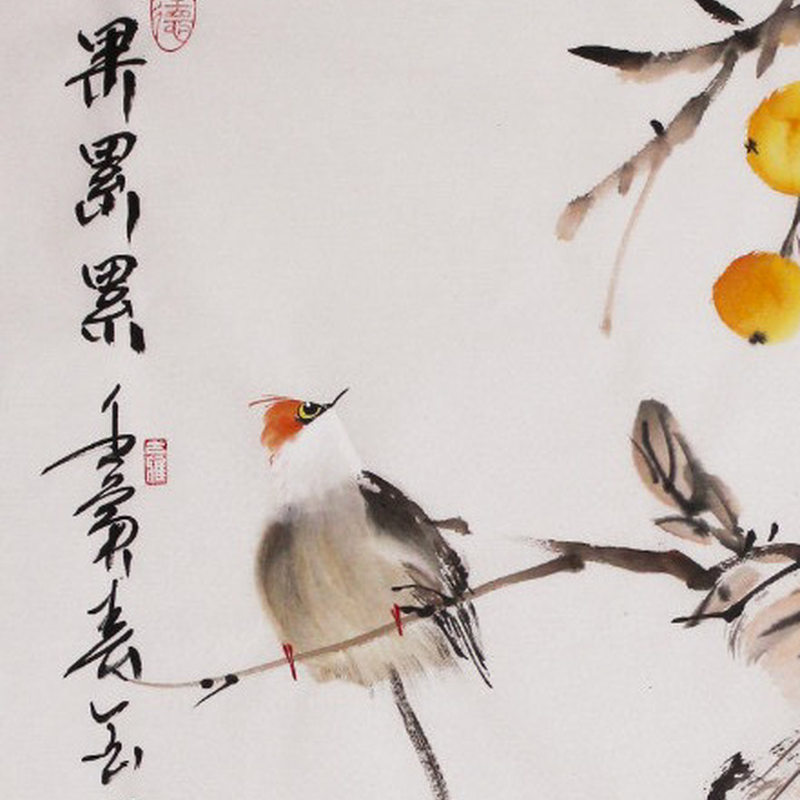 果累累 壬寅春
德